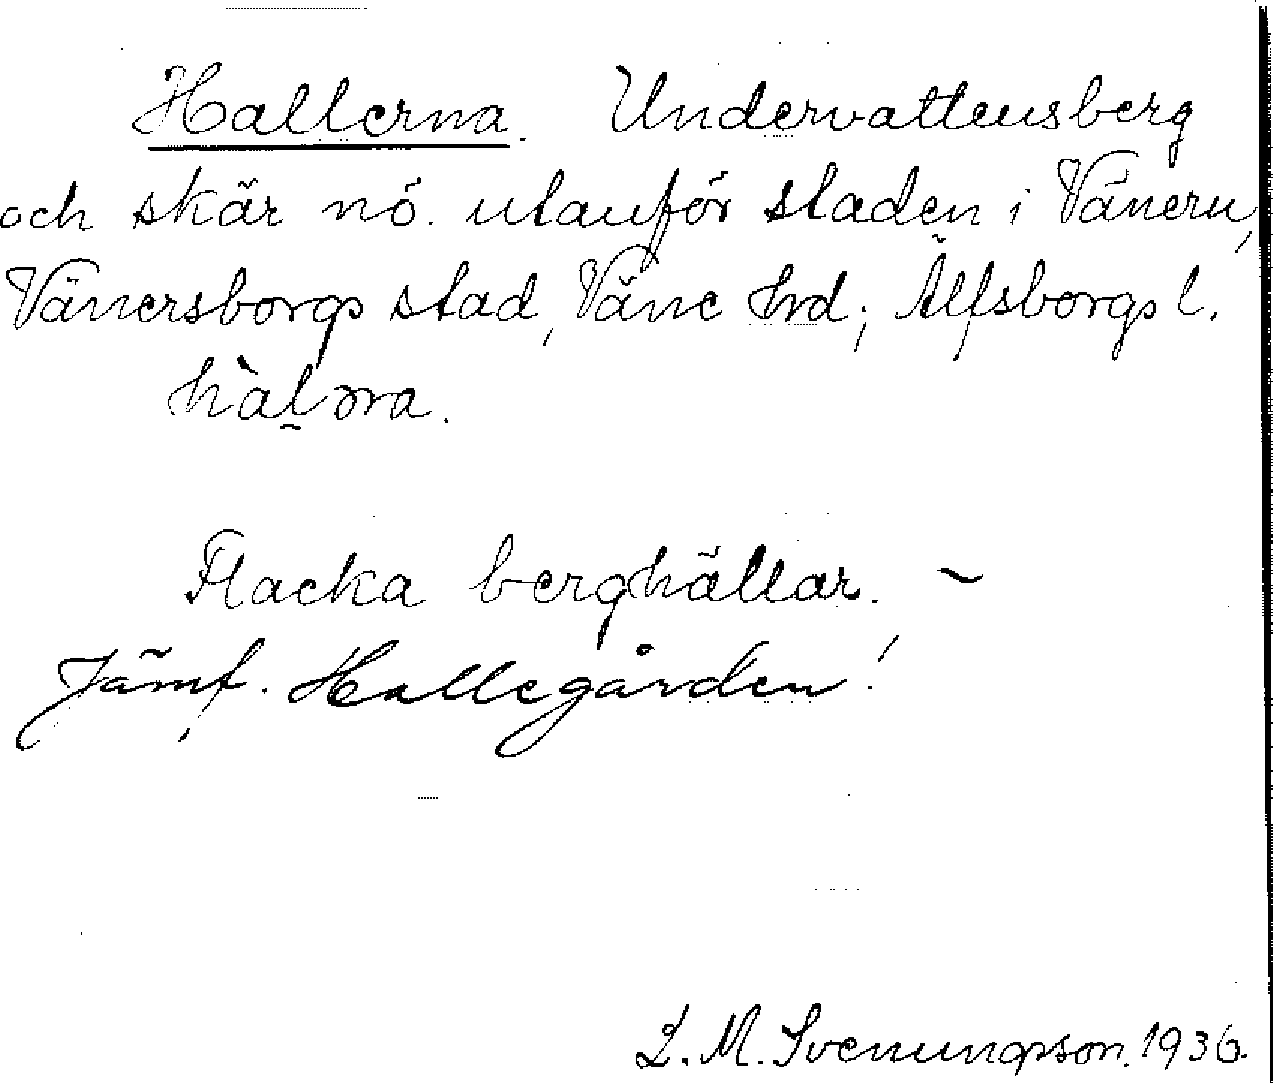 Hallerna. Undervattensberg
och skär nö. utanför staden i Vänern,
Vänersborgs stad, Väne hrd; Älfsborgs l.
Flacka berghällar. ~
Jämf. Hallegården!
L. M. Svenungsson. 1936.